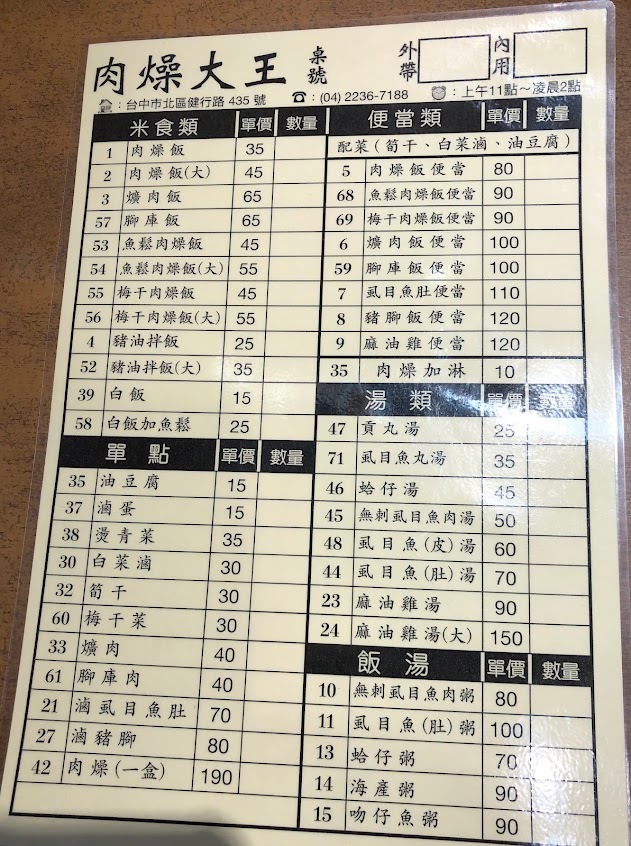 肉燥大王 桌號 外帶 內用
:台中市北區健行路 435 號 :(04) 2236-7188 :上午11點～凌晨2點
米食類 單價 數量
1 肉燥飯 35
2 肉燥飯(大) 45
3 爌肉飯 65
57 腳庫飯 65
53 魚鬆肉燥飯 45
54 魚鬆肉燥飯(大) 55
55 梅干肉燥飯 45
56 梅干肉燥飯(大) 55
4 豬油拌飯 25
52 豬油拌飯(大) 35
39 白飯 15
58 白飯加魚鬆 25
單點 單價 數量
35 油豆腐 15
37 滷蛋 15
38 燙青菜 35
30 白菜滷 30
32 筍干 30
60 梅干菜 30
33 爌肉 40
61 腳庫肉 40
21 滷虱目魚肚 70
27 滷豬腳 80
42 肉燥(一盒) 190
便當類 單價 數量
配菜(筍干、白菜滷、油豆腐)
5 肉燥飯便當 80
68 魚鬆肉燥飯便當 90
69 梅干肉燥飯便當 90
6 爌肉飯便當 100
59 腳庫飯便當 100
7 虱目魚肚便當 110
8 豬腳飯便當 120
9 麻油雞便當 120
35 肉燥加淋 10
湯類 單價 數量
47 貢丸湯 25
71 虱目魚丸湯 35
46 蛤仔湯 45
45 無刺虱目魚肉湯 50
48 虱目魚(皮)湯 60
44 虱目魚(肚)湯 70
23 麻油雞湯 90
24 麻油雞湯(大) 150
飯湯 單價 數量
10 無刺虱目魚肉粥 80
11 虱目魚(肚)粥 100
13 蛤仔粥 70
14 海產粥 90
15 吻仔魚粥 90